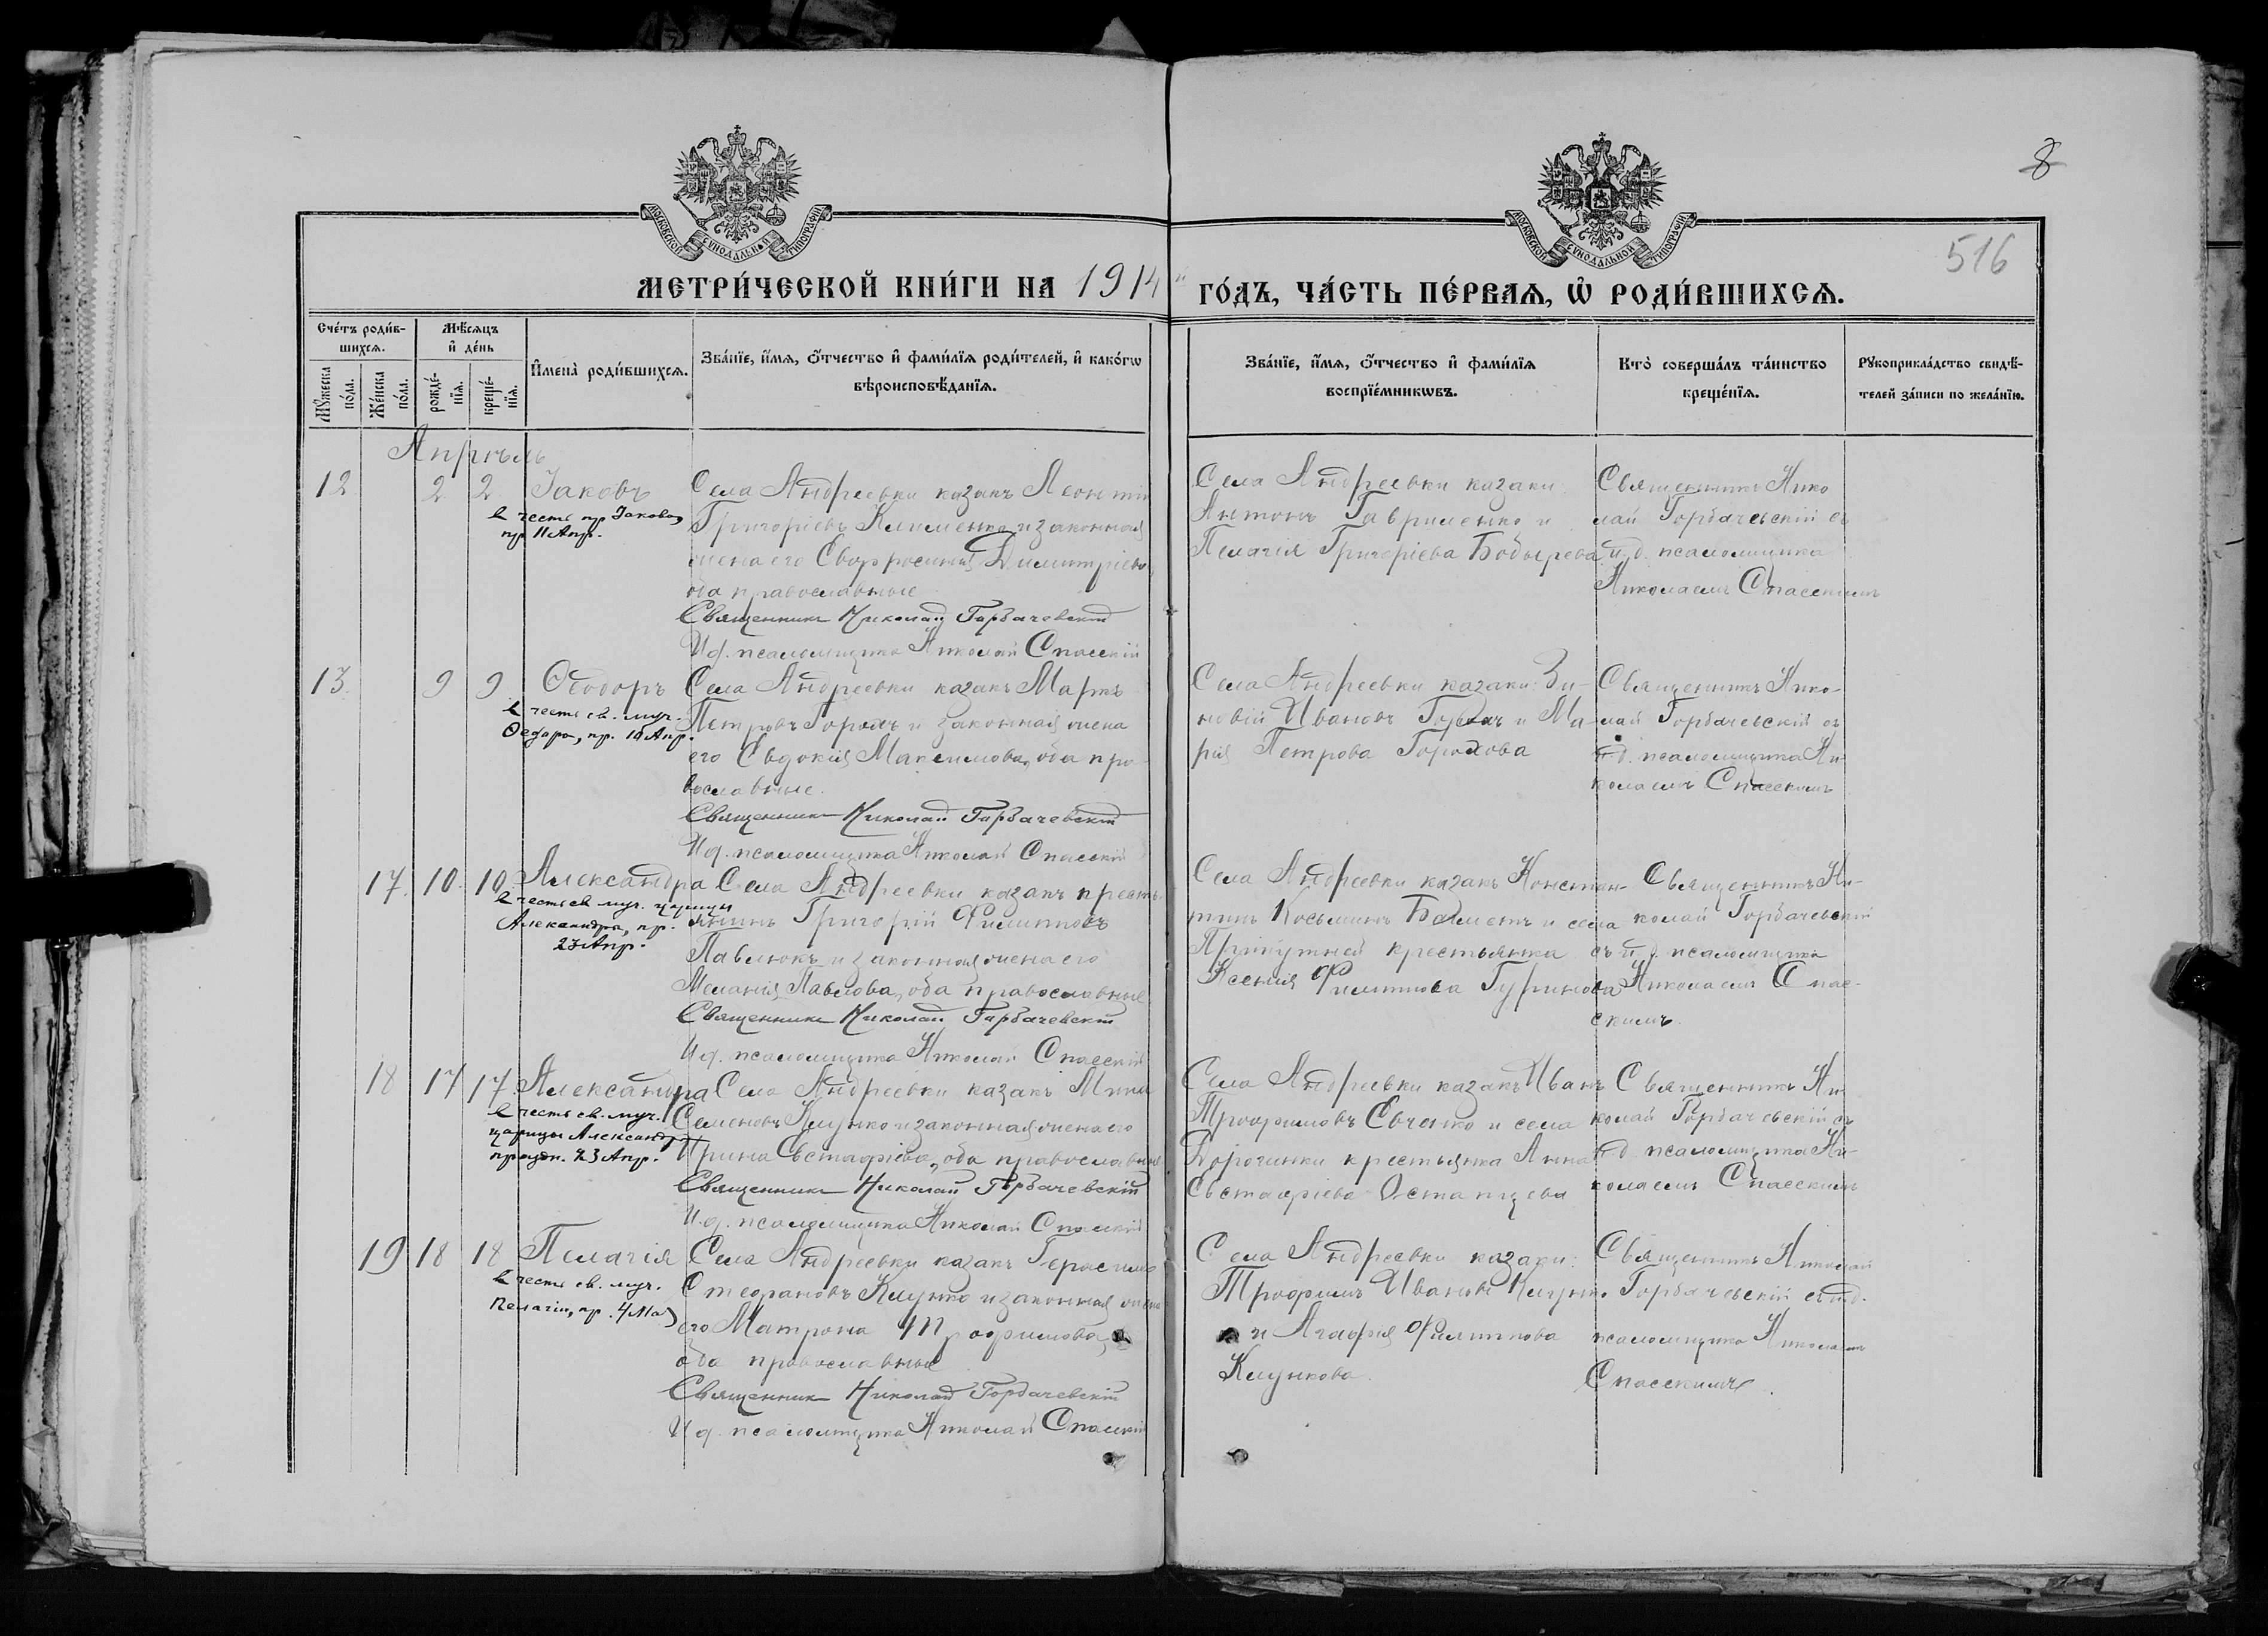 8
516
МОСКОВСКОЙ СѴНОДАЛЬНОЙ ТИПОГРАФІИ
МОСКОВСКОЙ СѴНОДАЛЬНОЙ ТИПОГРАФІИ
МЕТРИ́ЧЕСКОЙ КНИ́ГИ НА 1914 ГО́ДЪ, ЧА́СТЬ ПЕ́РВАЯ, Ѡ РОДИ́ВШИХСЯ.
Сче́тъ роди́в-
шихся.
Мѣ́сяцъ
и де́нь
Му́жеска
по́ла.
Же́нска
по́ла.
рожде́-
нїя.
креще́-
нїя.
Имена̀ роди́вшихся.
Зва́нїе, и́мя, о́тчество и фами́лїя роди́телей, и како́гѡ
вѣроисповѣ́данїя.
Зва́нїе, и́мя, о́тчество и фами́лїя
воспрїе́мникѡвъ.
Кто̀ соверша́лъ та́инство
креще́нїя.
Рꙋкоприкла́дство свидѣ́-
телей за́писи по жела́нїю.
Апрѣль
12 2 2 Іаковъ
в честь пр. Іакова,
пр. 11 Апр.
Села Андреевки казакъ Леонтій
Григоріевъ Клименко и законная
жена его Евфросинія Димитріева
оба православные
Священникъ Николай Горбачевскій
И.д. псаломщика Николай Спасскій
Села Андреевки казаки:
Антонъ Гавриленко и
Пелагія Григоріева Бобырева
Священникъ Нико
лай Горбачевскій съ
и.д. псаломщика
Николаемъ Спасскимъ
13. 9 9 Ѳеодоръ
в честь св. муч.
Ѳедора, пр. 10 Апр.
Села Андреевки казакъ Маркъ
Петровъ Горохъ и законная жена
его Евдокія Максимова, оба пра-
вославные.
Священникъ Николай Горбачевскій
И.д. псаломщика Николай Спасскій
Села Андреевки казаки: Зи-
новій Ивановъ и Ма-
рія Петрова Горохова
Священникъ Нико-
лай Горбачевскій съ
и.д. псаломщика Ни-
колаемъ Спасскимъ
17. 10. 10 Александра
в честь св. муч. царицы
Александры, пр.
23 Апр.
Села Андреевки казакъ кресть-
янинъ Григорій Филипповъ
Павлюкъ и законная жена его
Меланія Павлова, оба православные
Священникъ Николай Горбачевскій
И.д. псаломщика Николай Спасскій
Села Андреевки казакъ Констан-
тинъ Косьминъ и села
крестьянка
Ксенія Филиппова Гуринова
Священникъ Ни-
колай Горбачевскій
съ и.д. псаломщика
Николаемъ Спас-
скимъ.
18 17 17. Александра
в честь св. муч.
царицы Александры
праздн. 23 Апр.
Села Андреевки казакъ Мина
Семеновъ Клунко и законная жена его
Ирина Евстафіева, оба православные
Священникъ Николай Горбачевскій
И.д. псаломщика Николай Спасскій
Села Андреевки казакъ Иванъ
Трофимовъ Евченко и села
Дорогинки крестьянка Анна
Евстафіева Остапцева
Священникъ Ни
колай Горбачевскій съ
и.д. псаломщика Ни-
колаемъ Спасскимъ
19 18 18 Пелагія
в честь св. муч.
Пелагіи, пр. 4 Мая
Села Андреевки казакъ Герасимъ
Стефановъ Клунко и законная жена
его Матрона Трофимова,
оба православные
Священникъ Николай Горбачевскій
И.д. псаломщика Николай Спасскій
Села Андреевки казаки:
Трофимъ Ивановъ Клунко
и Агафія Филиппова
Клункова.
Священникъ Николай
Горбачевскій съ и.д.
псаломщика Николаемъ
Спасскимъ.